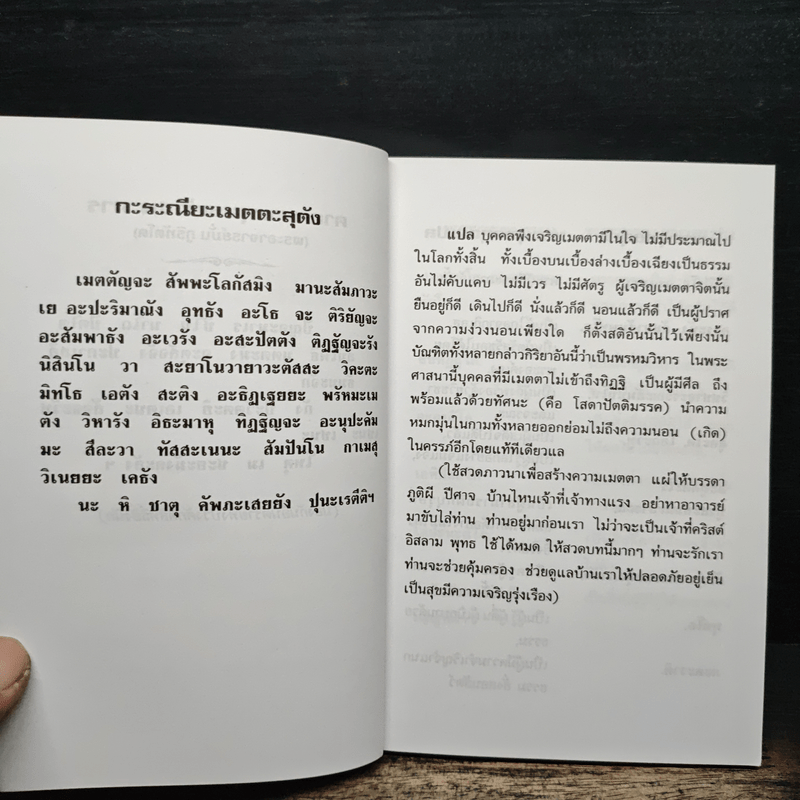 กะระณียะเมตตะสุตัง
เมตตัญจะ สัพพะโลกัสมิง มานะสัมภาวะ
เย อะปะริมาณัง อุทธัง อะโธ จะ ติริยัญจะ
อะสัมพาธัง อะเวรัง อะสะปัตตัง ติฏฐัญจะรัง
นิสินโน วา สะยาโนวายาวะตัสสะ วิคะตะ
มิทโธ เอตัง สะติง อะธิฏเฐยยะ พรัหมะเม
ตัง วิหารัง อิธะมาหุ ทิฏฐิญจะ อะนุปะคัม
มะ สีละวา ทัสสะเนนะ สัมปันโน กาเมสุ
วิเนยยะ เคธัง
นะ หิ ชาตุ คัพภะเสยยัง ปุนะเรตีติฯ
แปล บุคคลพึงเจริญเมตตามีในใจ ไม่มีประมาณไป
ในโลกทั้งสิ้น ทั้งเบื้องบนเบื้องล่างเบื้องเฉียงเป็นธรรม
อันไม่คับแคบ ไม่มีเวร ไม่มีศัตรู ผู้เจริญเมตตาจิตนั้น
ยืนอยู่ก็ดี เดินไปก็ดี นั่งแล้วก็ดี นอนแล้วก็ดี เป็นผู้ปราศ
จากความง่วงนอนเพียงใด ก็ตั้งสติอันนั้นไว้เพียงนั้น
บัณฑิตทั้งหลายกล่าวกิริยาอันนี้ว่าเป็นพรหมวิหาร ในพระ
ศาสนานี้บุคคลที่มีเมตตาไม่เข้าถึงทิฏฐิ เป็นผู้มีศีล ถึง
พร้อมแล้วด้วยทัศนะ (คือ โสดาปัตติมรรค) นำความ
หมกมุ่นในกามทั้งหลายออกย่อมไม่ถึงความนอน (เกิด)
ในครรภ์อีกโดยแท้ทีเดียวแล
(ใช้สวดภาวนาเพื่อสร้างความเมตตา แผ่ให้บรรดา
ภูติผี ปีศาจ บ้านไหนเจ้าที่เจ้าทางแรง อย่าหาอาจารย์
มาขับไล่ท่าน ท่านอยู่มาก่อนเรา ไม่ว่าจะเป็นเจ้าที่คริสต์
อิสลาม พุทธ ใช้ได้หมด ให้สวดบทนี้มากๆ ท่านจะรักเรา
ท่านจะช่วยคุ้มครอง ช่วยดูแลบ้านเราให้ปลอดภัยอยู่เย็น
เป็นสุขมีความเจริญรุ่งเรือง)